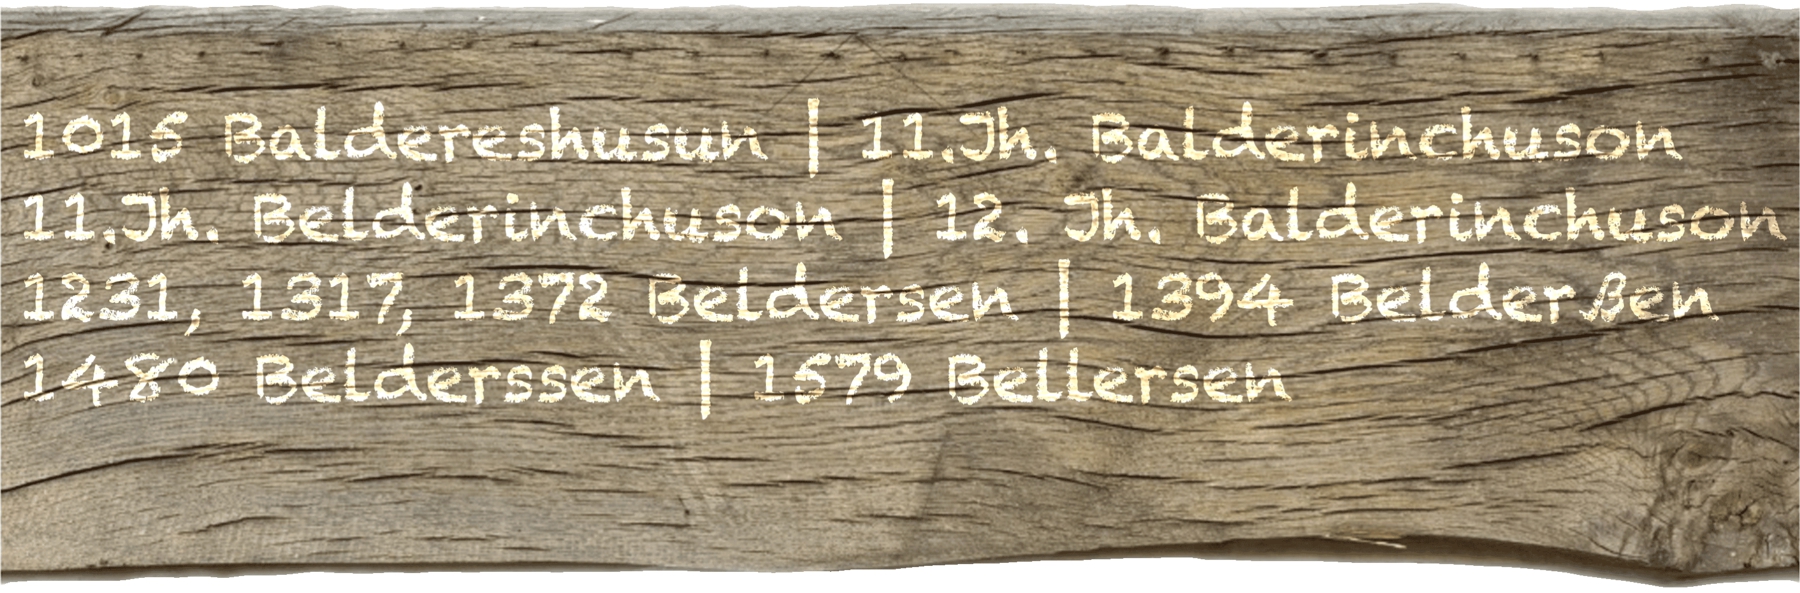 1015 Baldereshusun | 11.Jh. Balderinchuson
11.Jh. Belderinchuson | 12. Jh. Balderinchuson
1231, 1317, 1372 Beldersen | 1394 Belderßen
1480 Belderssen | 1579 Bellersen